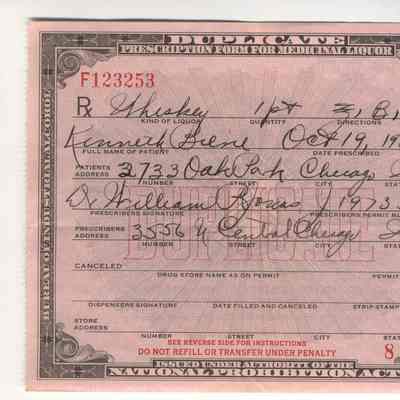 DUPLICATE
PRESCRIPTION FORM FOR MEDICINAL LIQUOR
F123253
Rx Whiskey 1 pt
KIND OF LIQUOR QUANTITY DIRECTIONS
Kenneth Oct 19 19
FULL NAME OF PATIENT DATE PRESCRIBED
PATIENTS ADDRESS 2733 Oak Park Chicago
NUMBER STREET CITY STA
Dr William 1973
PRESCRIBERS SIGNATURE PRESCRIBERS PERMIT
PRESCRIBERS ADDRESS 3556 N Central Chicago
NUMBER STREET CITY STAT
CANCELED
DRUG STORE NAME AS ON PERMIT PERMIT
DISPENSERS SIGNATURE DATE FILLED AND CANCELED STRIP-STAMP
STORE ADDRESS
NUMBER STREET CITY STAT
SEE REVERSE SIDE FOR INSTRUCTIONS
DO NOT REFILL OR TRANSFER UNDER PENALTY 8
ISSUED UNDER AUTHORITY OF THE
NATIONAL PROHIBITION ACT
BUREAU OF INDUSTRIAL ALCOHOL